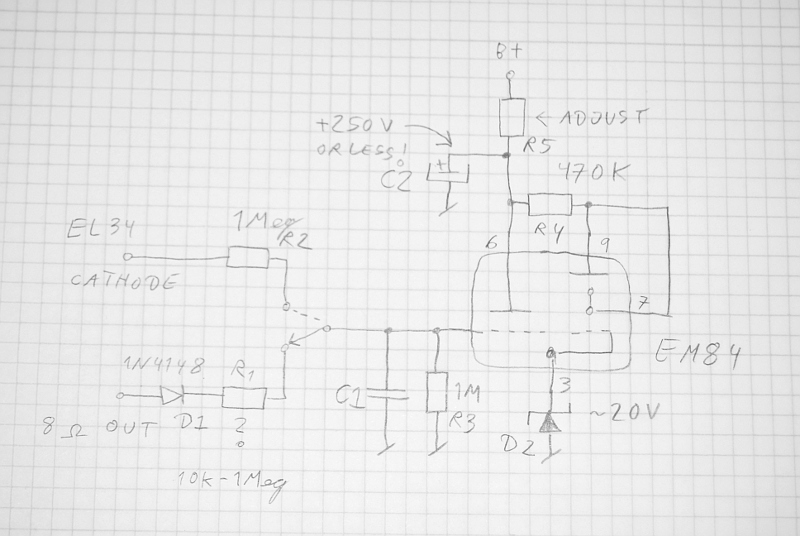 B+
← ADJUST
R5
+250V
OR LESS!
C2
470K
R4
6
9
7
EL34
CATHODE
1Meg
R2
1N4148
D1
R1
8Ω OUT
2
10K-1Meg
C1
1M
R3
EM84
3
~20V
D2
+